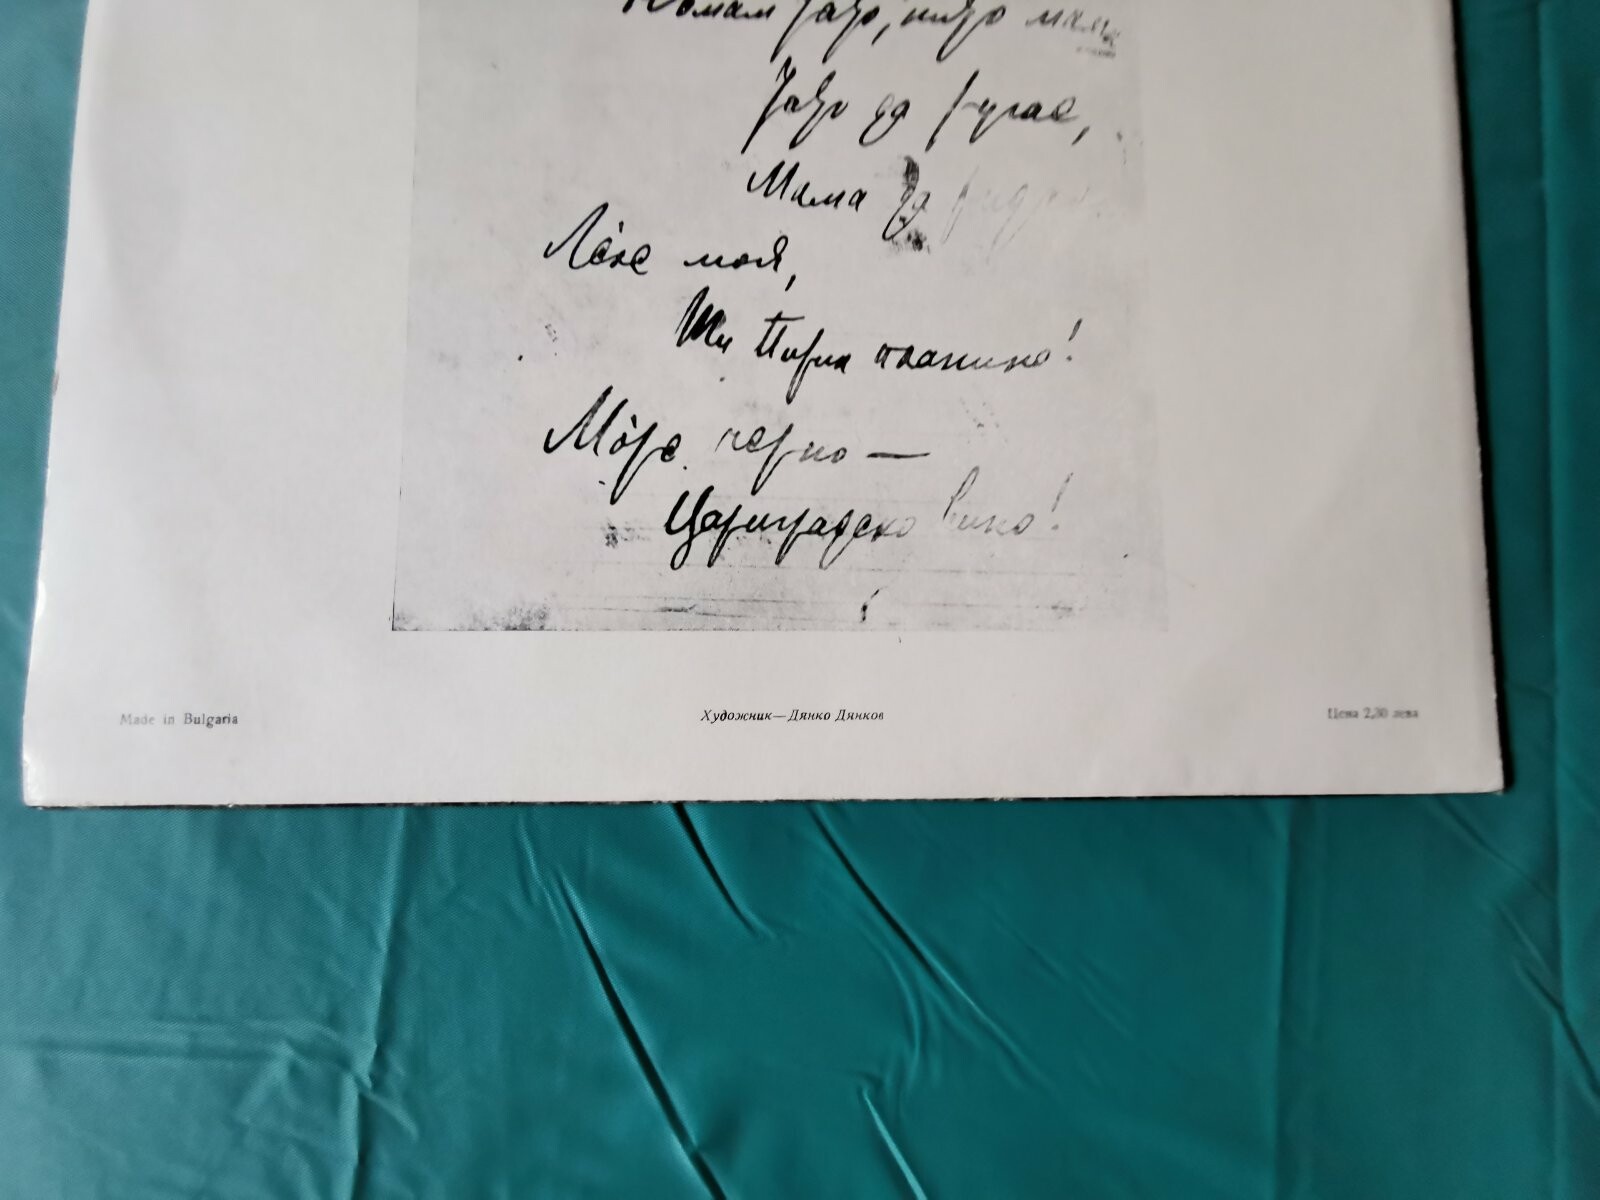 Нӣмам татко, нито мама
Татко да ругае,
Мама да
Легло моя,
Ти Пирин планино!
Мо̀ре черно —
Цариградско вино!
Made in Bulgaria
Художник—Дянко Дянков
Цена 2,30 лева